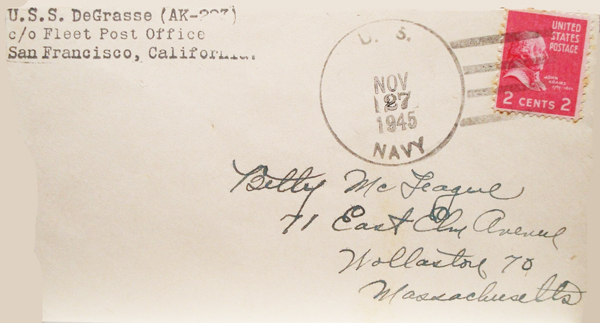 U.S.S. DeGrasse (AK-223)
c/o Fleet Post Office
San Francisco, California.
U. S.
NOV
27
1945
NAVY
UNITED
STATES
POSTAGE
JOHN
ADAMS
2 CENTS 2
Betty McTeague
71 East Elm Avenue
Wollaston 70
Massachusetts